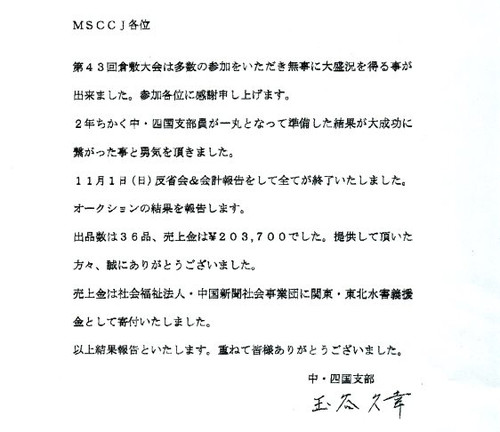 ＭＳＣＣＪ各位
第４３回倉敷大会は多数の参加をいただき無事に大盛況を得る事が
出来ました。参加各位に感謝申し上げます。
２年ちかく中・四国支部員が一丸となって準備した結果が大成功に
繋がった事と勇気を頂きました。
１１月１日（日）反省会＆会計報告をして全てが終了いたしました。
オークションの結果を報告します。
出品数は３６品、売上金は￥２０３，７００でした。提供して頂いた
方々、誠にありがとうございました。
売上金は社会福祉法人・中国新聞社会事業団に関東・東北水害義援
金として寄付いたしました。
以上結果報告といたします。重ねて皆様ありがとうございました。
中・四国支部
玉谷久幸